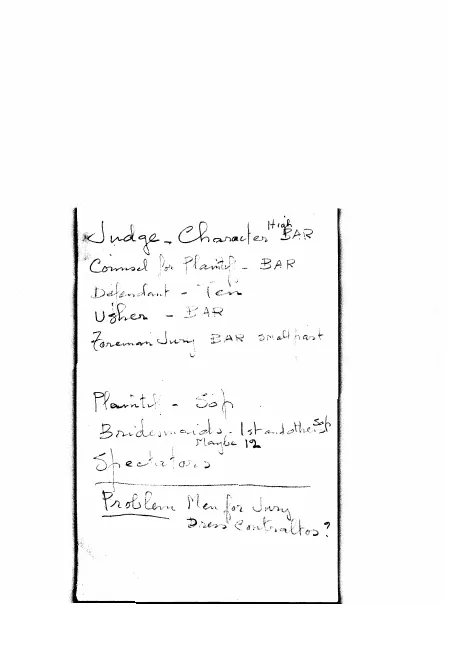 Judge - Character High BAR
Counsel for Plaintif - BAR
Defendant - Ten
Usher - BAR
Foreman Jury BAR small part
Plaintif - Sop
Bridesmaids - 1st and others Sop
Maybe 12
Spectators
Problem Men for Jury
Dress Contraltos?